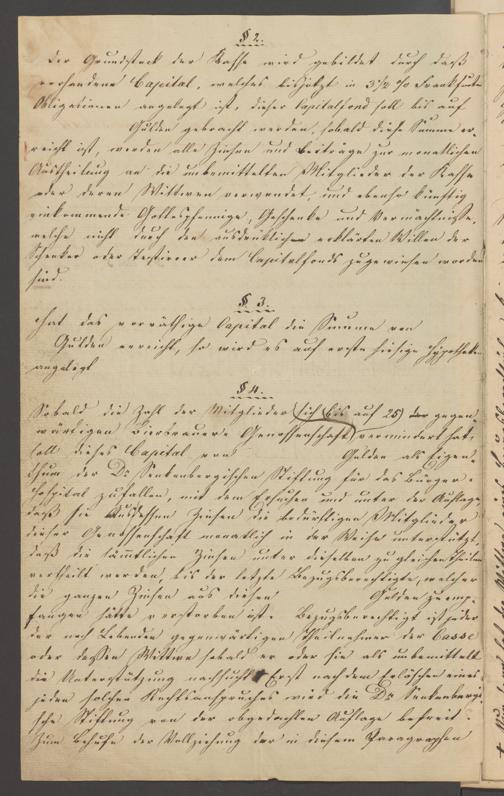 § 2.
Der Grundstock der Kasse wird gebildet durch das
vorhandene Capital, welches bis jetzt in 3 1/2 % Frankfurter
Obligationen angelegt ist, dieser Capitalfond soll bis auf
Gulden gebracht werden, sobald diese Summe er-
reicht ist, werden alle Zinsen und Beiträge zur monatlichen
Austheilung an die unbemittelten Mitglieder der Kasse
oder deren Wittwen verwendet, und ebenso künftig
einkommende Gottespfennige, Geschenke und Vermächtnisse,
welche nicht durch den ausdrücklichen erklärten Willen der
Schenker oder Testierer dem Capitalfonds zugewiesen worden
sind.
§. 3.
Hat das vorräthige Capital die Summe von
Gulden erreicht, so wird es auf erste hiesige Hypotheken
angelegt
§. 4.
Sobald die Zahl der Mitglieder (sich bis auf 25) der gegen-
wärtigen Bierbrauer Genossenschaft vermindert hat,
soll dieses Capital von Gulden als Eigen-
thum der Dr. Senkenbergischen Stiftung für das Bürger-
hospital zufallen, mit dem Ersuchen und unter der Auflage
daß sie Aus dessen Zinsen die bedürftigen Mitglieder
dieser Genossenschaft monatlich in der Weise unterstützt,
daß die sämmtlichen Zinsen unter dieselben zu gleichen Theilen
vertheilt werden, bis der letzte Bezugsberechtigte, welcher
die ganzen Zinsen aus diesen Gulden zu em-
pfangen hätte verstorben ist. Bezugsberechtigt ist jeder
der noch Lebenden gegenwärtigen Theilnehmer der Casse
oder dessen Wittwe sobald er oder sie als unbemittelt
die Unterstützung nachsucht. Erst nach dem Erlöschen eines
jeden solchen Rechtsanspruches wird die Dr. Senkenbergi-
sche Stiftung von der obgedachten Auflage befreit.
Zum Behufe der Vollziehung der in diesem Paragraphen